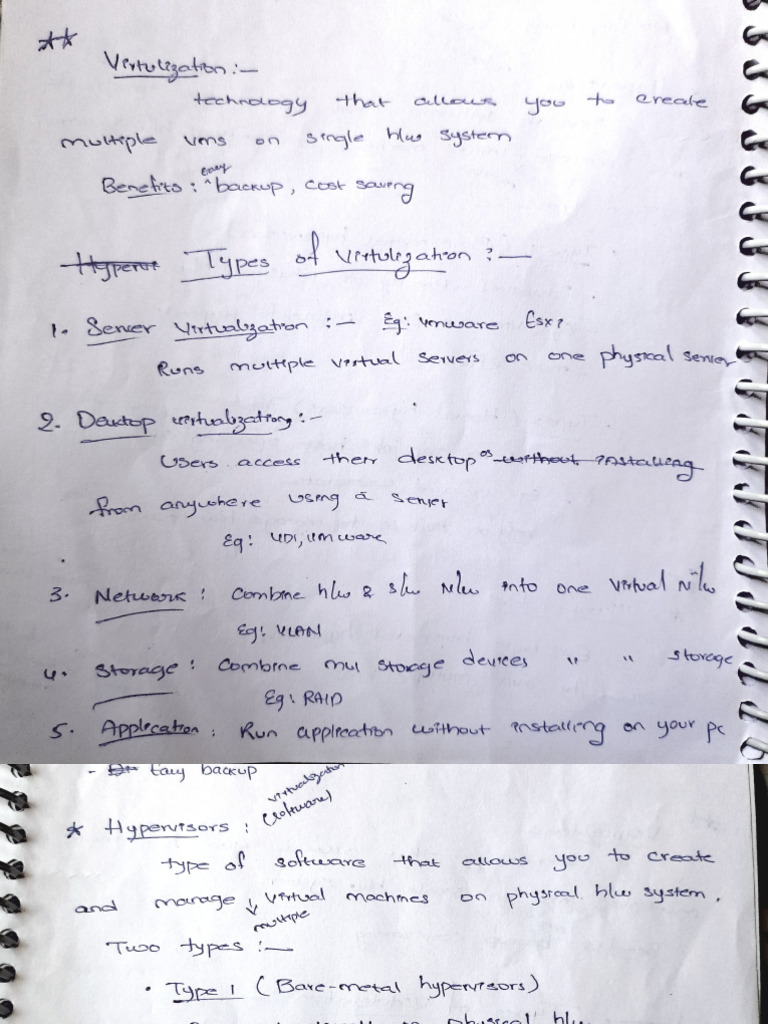 **
Virtulization :-
technology that allows you to create
multiple vms on single h/w system
Benefits : ^easy backup, cost saving
Hypervi Types of virtulization :-
1. Server Virtualization :- Eg: vmware Esxi
Runs multiple virtual servers on one physical server
2. Desktop virtualization :-
Users access their desktop os without installing
from anywhere using a server
Eg: VDI, vmware
3. Network : Combine h/w & s/w N/w into one virtual N/w
Eg: VLAN
4. Storage : Combine mul storage devices " " storage
Eg: RAID
5. Application : Run application without installing on your pc
- Easy backup
* Hypervisors : (software) virtualization
type of software that allows you to create
and manage multiple virtual machines on physical h/w system.
Two types :-
• Type 1 (Bare-metal hypervisors)
physical h/w